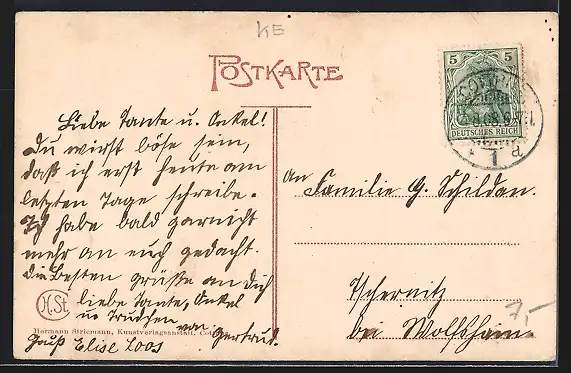 KE
POSTKARTE
5 5
DEUTSCHES REICH
1 a
Liebe Tante u. Onkel!
Du wirst böse sein,
daß ich erst heute am
letzten Tage schreibe.
Ich habe bald garnicht
mehr an euch gedacht.
Die Besten Grüße an Dich
liebe Tante, Onkel
u. Trudchen
von Gertrud.
Gruß Elise Loos
An Familie G. Schildan.
Tschernitz
bei Wolfshain
7,-
H.St.
Hermann Striemann, Kunstverlagsanstalt, Cottbus